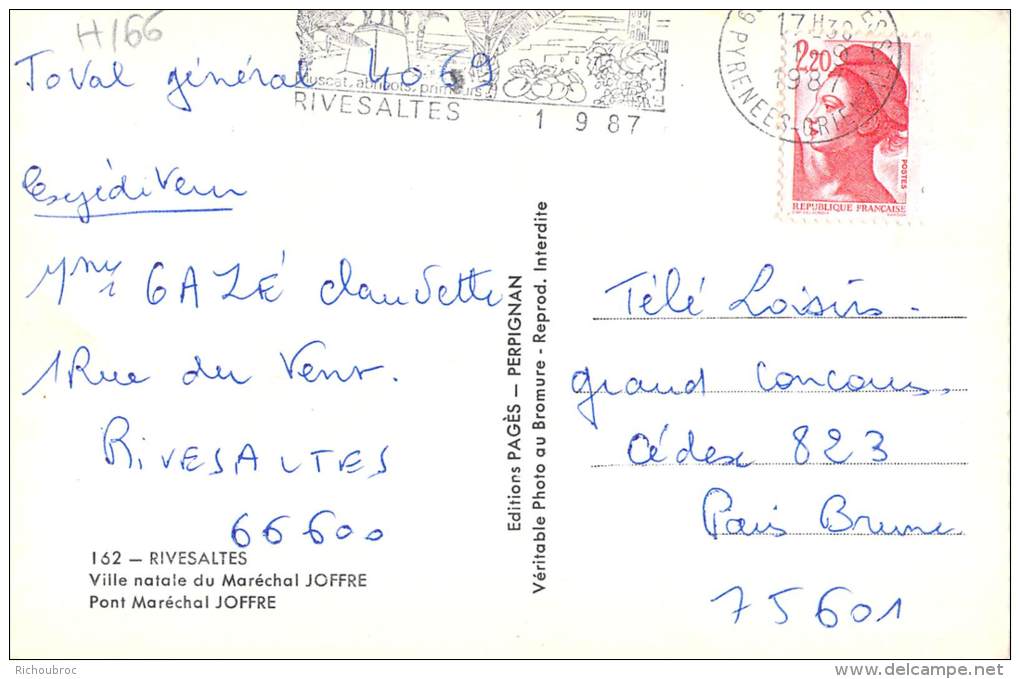 H/166
Toval général 4069
Muscat, abricots, primeurs
RIVESALTES
1 9 87
17H30
1987
PYRENEES-ORIE
2,20
POSTES
REPUBLIQUE FRANÇAISE
Expéditeur
Mme GAZÉ Claudette
1 Rue du Vent.
RIVESALTES
66600
162 — RIVESALTES
Ville natale du Maréchal JOFFRE
Pont Maréchal JOFFRE
Editions PAGÈS — PERPIGNAN
Véritable Photo au Bromure - Reprod. Interdite
Télé Loisirs.
grand concours.
Cédex 823
Paris Brune
75601
Richoubroc
delcampe.net